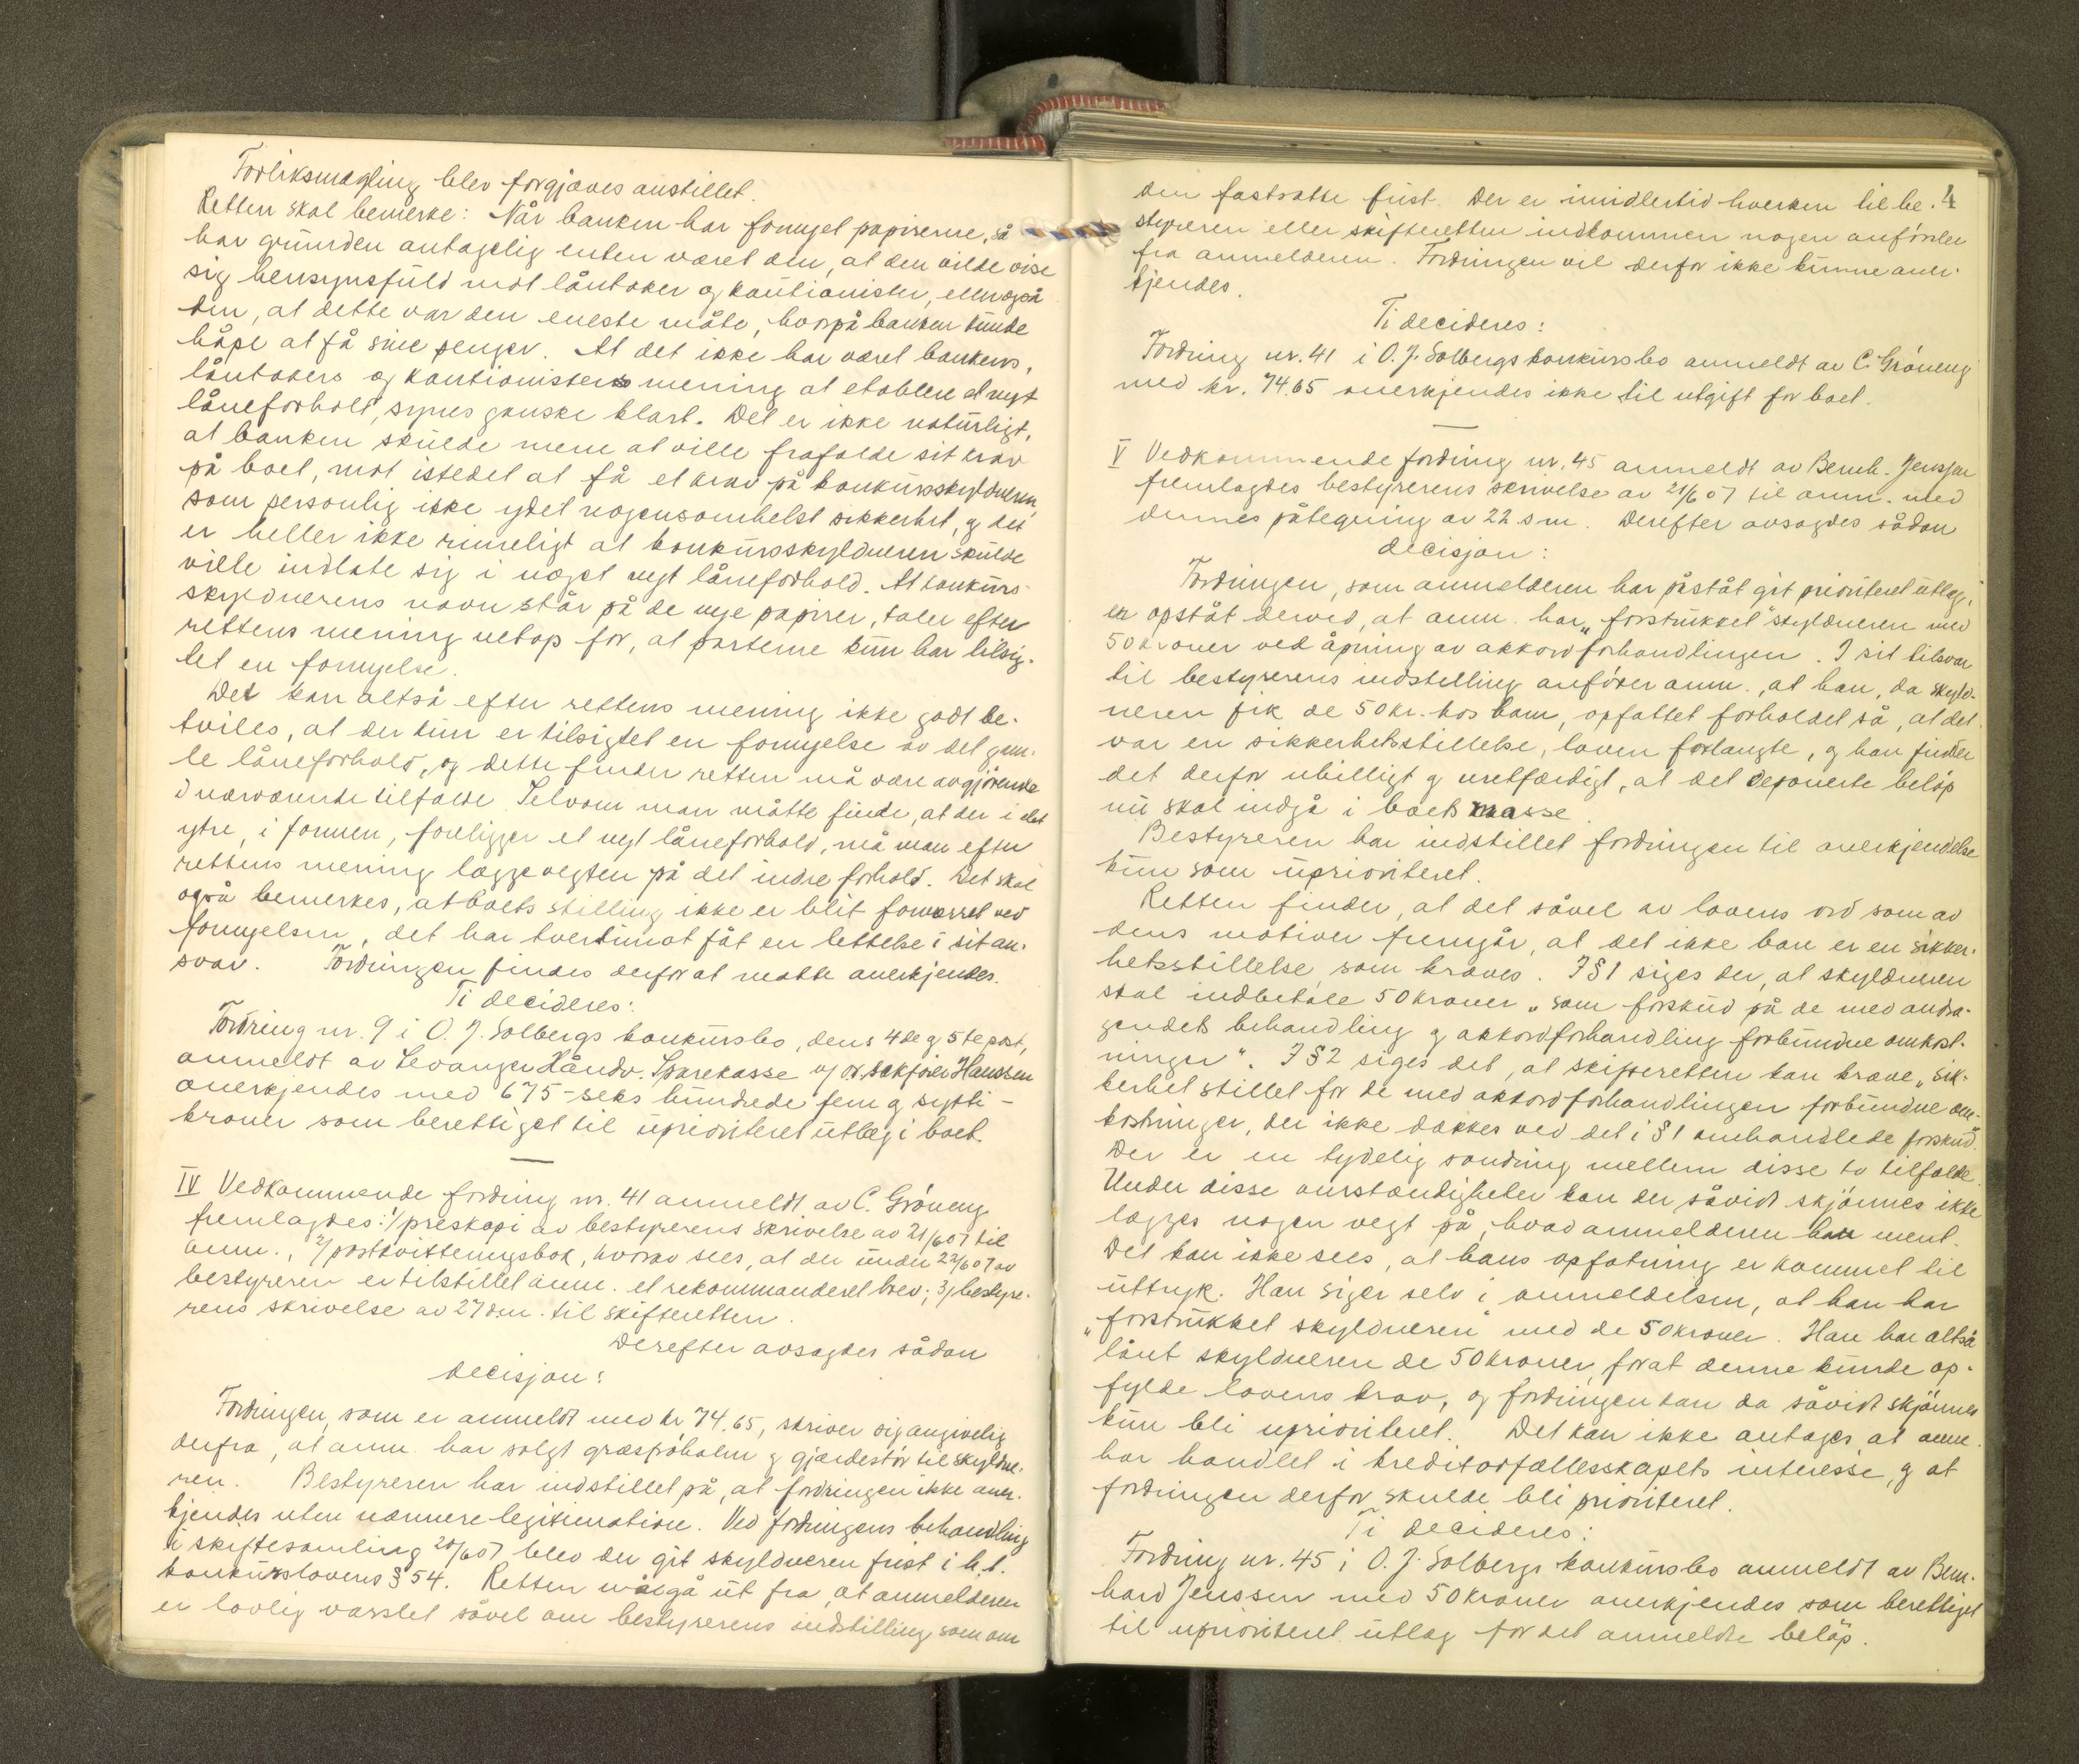 Forliksmægling blev forgjæves anstillet.
Retten skal bemerke: Når banken har fornyet papirerne, så
har grunden antagelig enten været den, at den vilde vise
sig hensynsfuld mot låntaker og kautionister, eller også
den, at dette var den eneste måte, hvorpå banken kunde
håpe at få sine penger. At det ikke har været bankens,
låntakers og kautionisters mening at etablere et nyt
låneforhold, synes ganske klart. Det er ikke naturligt,
at banken skulde mene at ville frafalde sit krav
på boet, mot istedet at få et krav på konkursskyldneren,
som personlig ikke ydet nogensomhelst sikkerhet, og det
er heller ikke rimeligt at konkursskyldneren skulde
ville indlate sig i noget nyt låneforhold. At konkurs-
skyldnerens navn står på de nye papirer, taler efter
rettens mening netop for, at parterne kun har tilsig-
tet en fornyelse.
Det kan altså efter rettens mening ikke godt be-
tviles, at der kun er tilsigtet en fornyelse av det gam-
le låneforhold, og dette finder retten må være avgjørende
i nærværende tilfælde. Selvom man måtte finde, at der i det
ytre, i formen, foreligger et nyt låneforhold, må man efter
rettens mening lægge vegten på det indre forhold. Det skal
også bemerkes, at boets stilling ikke er blit forværret ved
fornyelsen, det har tvertimot fåt en lettelse i sit an-
svar. Fordringen findes derfor at måtte anerkjendes.
Ti decideres:
Fordring nr. 9 i O. J. Solbergs konkursbo, dens 4de og 5te post,
anmeldt av Levanger Håndv. Sparekasse v/ o.r.sakfører Hanssen
anerkjendes med 675 – seks hundrede fem og sytti –
kroner som berettiget til uprioriteret utlæg i boet.
IV Vedkommende fordring nr. 41 anmeldt av C. Gröneng
fremlagdes: 1/ preskopi av bestyrerens skrivelse av 21/6 07 til
anm., 2/ postkvitteringsbok, hvorav sees, at der under 22/6 07 av
bestyreren er tilstillet anm. et rekommanderet brev; 3/ bestyre-
rens skrivelse av 27 d.m. til skifteretten.
Derefter avsagdes sådan
decisjon:
Fordringen, som er anmeldt med kr 74.65, skriver sig angivelig
derfra, at anm. har solgt græs på holm og gjærdestör til skyldne-
ren. Bestyreren har indstillet på, at fordringen ikke aner-
kjendes uten nærmere legitimation. Ved fordringens behandling
i skiftesamling 20/6 07 blev der git skyldneren frist i h. t.
konkurslovens § 54. Retten må gå ut fra, at anmelderen
er lovlig varslet såvel om bestyrerens indstilling som om
4
den fastsatte frist. Der er imidlertid hverken til be-
styreren eller skifteretten indkommen nogen anförsler
fra anmelderen. Fordringen vil derfor ikke kunne aner-
kjendes.
Ti decideres:
Fordring nr. 41 i O. J. Solbergs konkursbo anmeldt av C. Gröneng
med kr. 74.65 anerkjendes ikke til utgift for boet.
V Vedkommende fordring nr. 45 anmeldt av Bernh. Jenssen
fremlagdes bestyrerens skrivelse av 21/6 07 til anm. med
dennes påtegning av 22 s m. Derefter avsagdes sådan
decisjon:
Fordringen, som anmelderen har påståt git prioriteret utlæg,
er opståt derved, at anm. har „forstrukket" skyldneren med
50 kroner ved åpning av akkordforhandlingen. I sit tilsvar
til bestyrerens indstilling anförer anm., at han, da skyld-
neren fik de 50 kr. hos ham, opfattet forholdet så, at det
var en sikkerhetsstillelse, loven forlangte, og han finder
det derfor ubilligt og uretfærdigt, at det deponerte beløp
nu skal indgå i boets masse.
Bestyreren har indstillet fordringen til anerkjendelse
kun som uprioriteret.
Retten finder, at det såvel av lovens ord som av
dens motiver fremgår, at det ikke bare er en sikker-
hetsstillelse som kræves. I § 1 siges der, at skyldneren
skal indbetale 50 kroner „som forskud på de med andra-
gendets behandling og akkordforhandling forbundne omkost-
ninger". I § 2 siges det, at skifteretten kan kræve „sik-
kerhet stillet for de med akkordforhandlingen forbundne om-
kostninger, der ikke dækkes ved det i § 1 omhandlede forskud".
Der er en tydelig sondring mellem disse to tilfælde.
Under disse omstændigheter kan der såvidt skjönnes ikke
lægges nogen vegt på, hvad anmelderen har ment.
Det kan ikke sees, at hans opfatning er kommet til
uttryk. Han siger selv i anmeldelsen, at han har
„forstrukket skyldneren" med de 50 kroner. Han har altså
lånt skyldneren de 50 kroner, forat denne kunde op-
fylde lovens krav, og fordringen kan da såvidt skjönnes
kun bli uprioriteret. Det kan ikke antages, at anm.
har handlet i kreditorfællesskapets interesse, og at
fordringen derfor skulde bli prioriteret.
Ti decideres:
Fordring nr. 45 i O. J. Solbergs konkursbo anmeldt av Bern-
hard Jenssen med 50 kroner anerkjendes som berettiget
til uprioriteret utlæg for det anmeldte beløp.